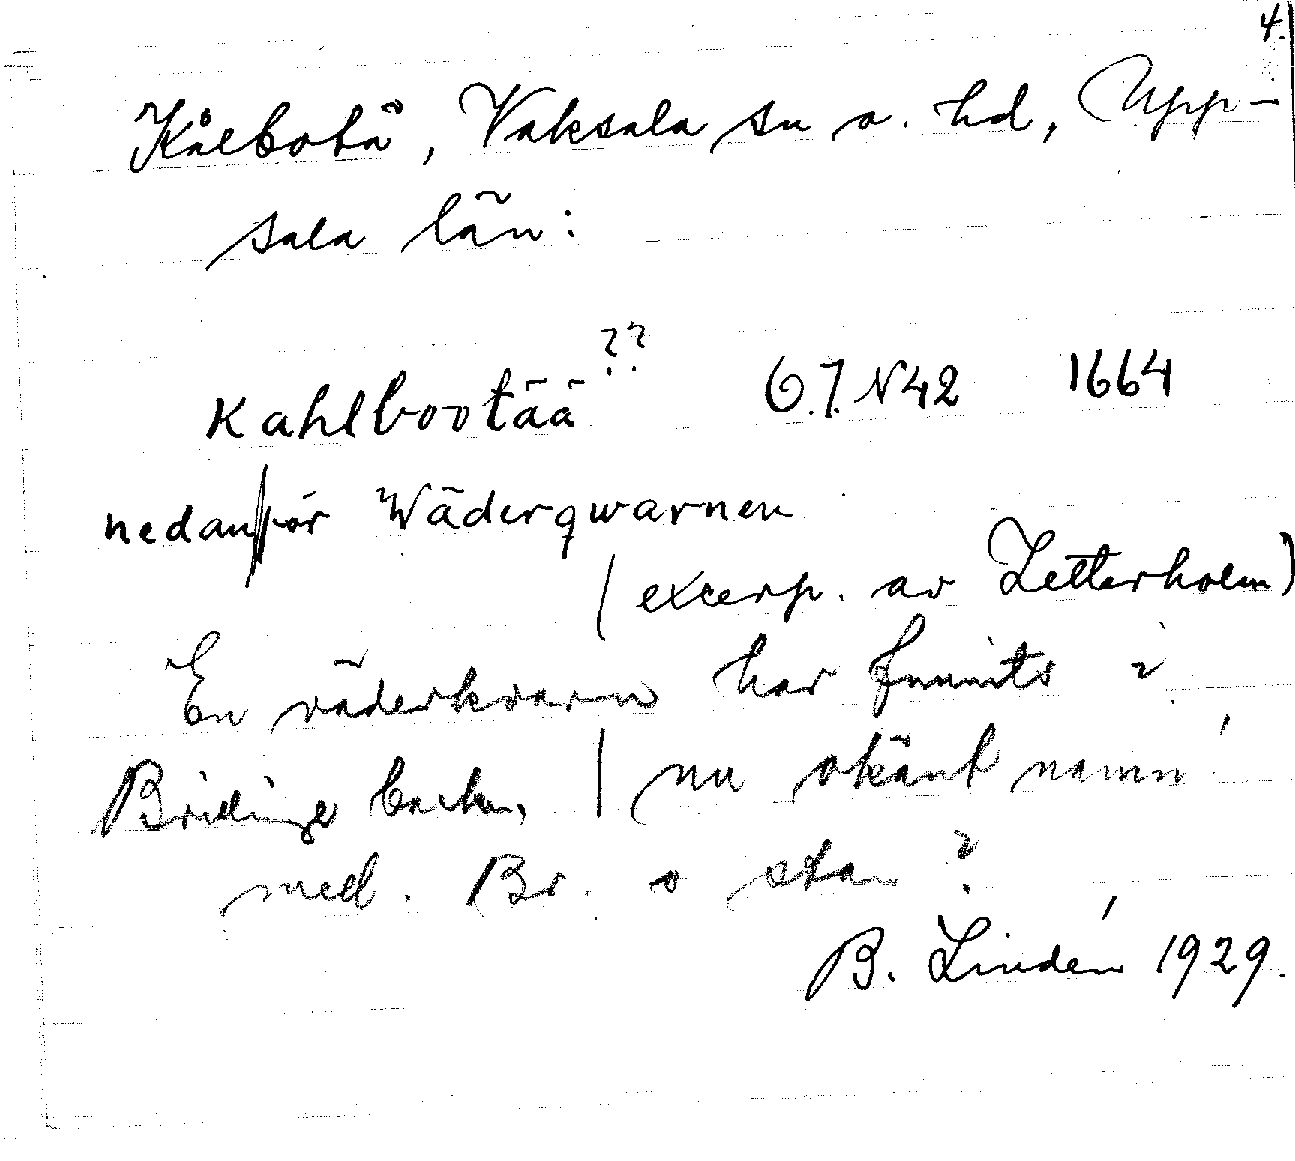 4.
Kålbotå, Vaksala sn o. hd, Upp-
sala län:
Kahlbootää ?? G.7. N42 1664
nedanför Wäderqwarnen
(excerp. av Zetterholm)
En väderkvarn har funnits i
Brillinge backen, | nu okänt namn
mell. Br. o stan?
B. Lindén 1929.